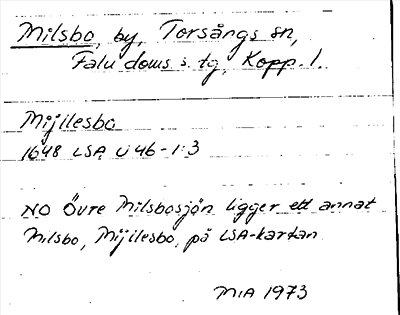 Milsbo, by, Torsångs sn,
Falu doms. tg, Kopp. l.
Mijilesbo
1648 LSA U 46-1:3
NO Övre Milsbosjön ligger ett annat
Milsbo, Mijilesbo, på LSA-kartan
MIA 1973